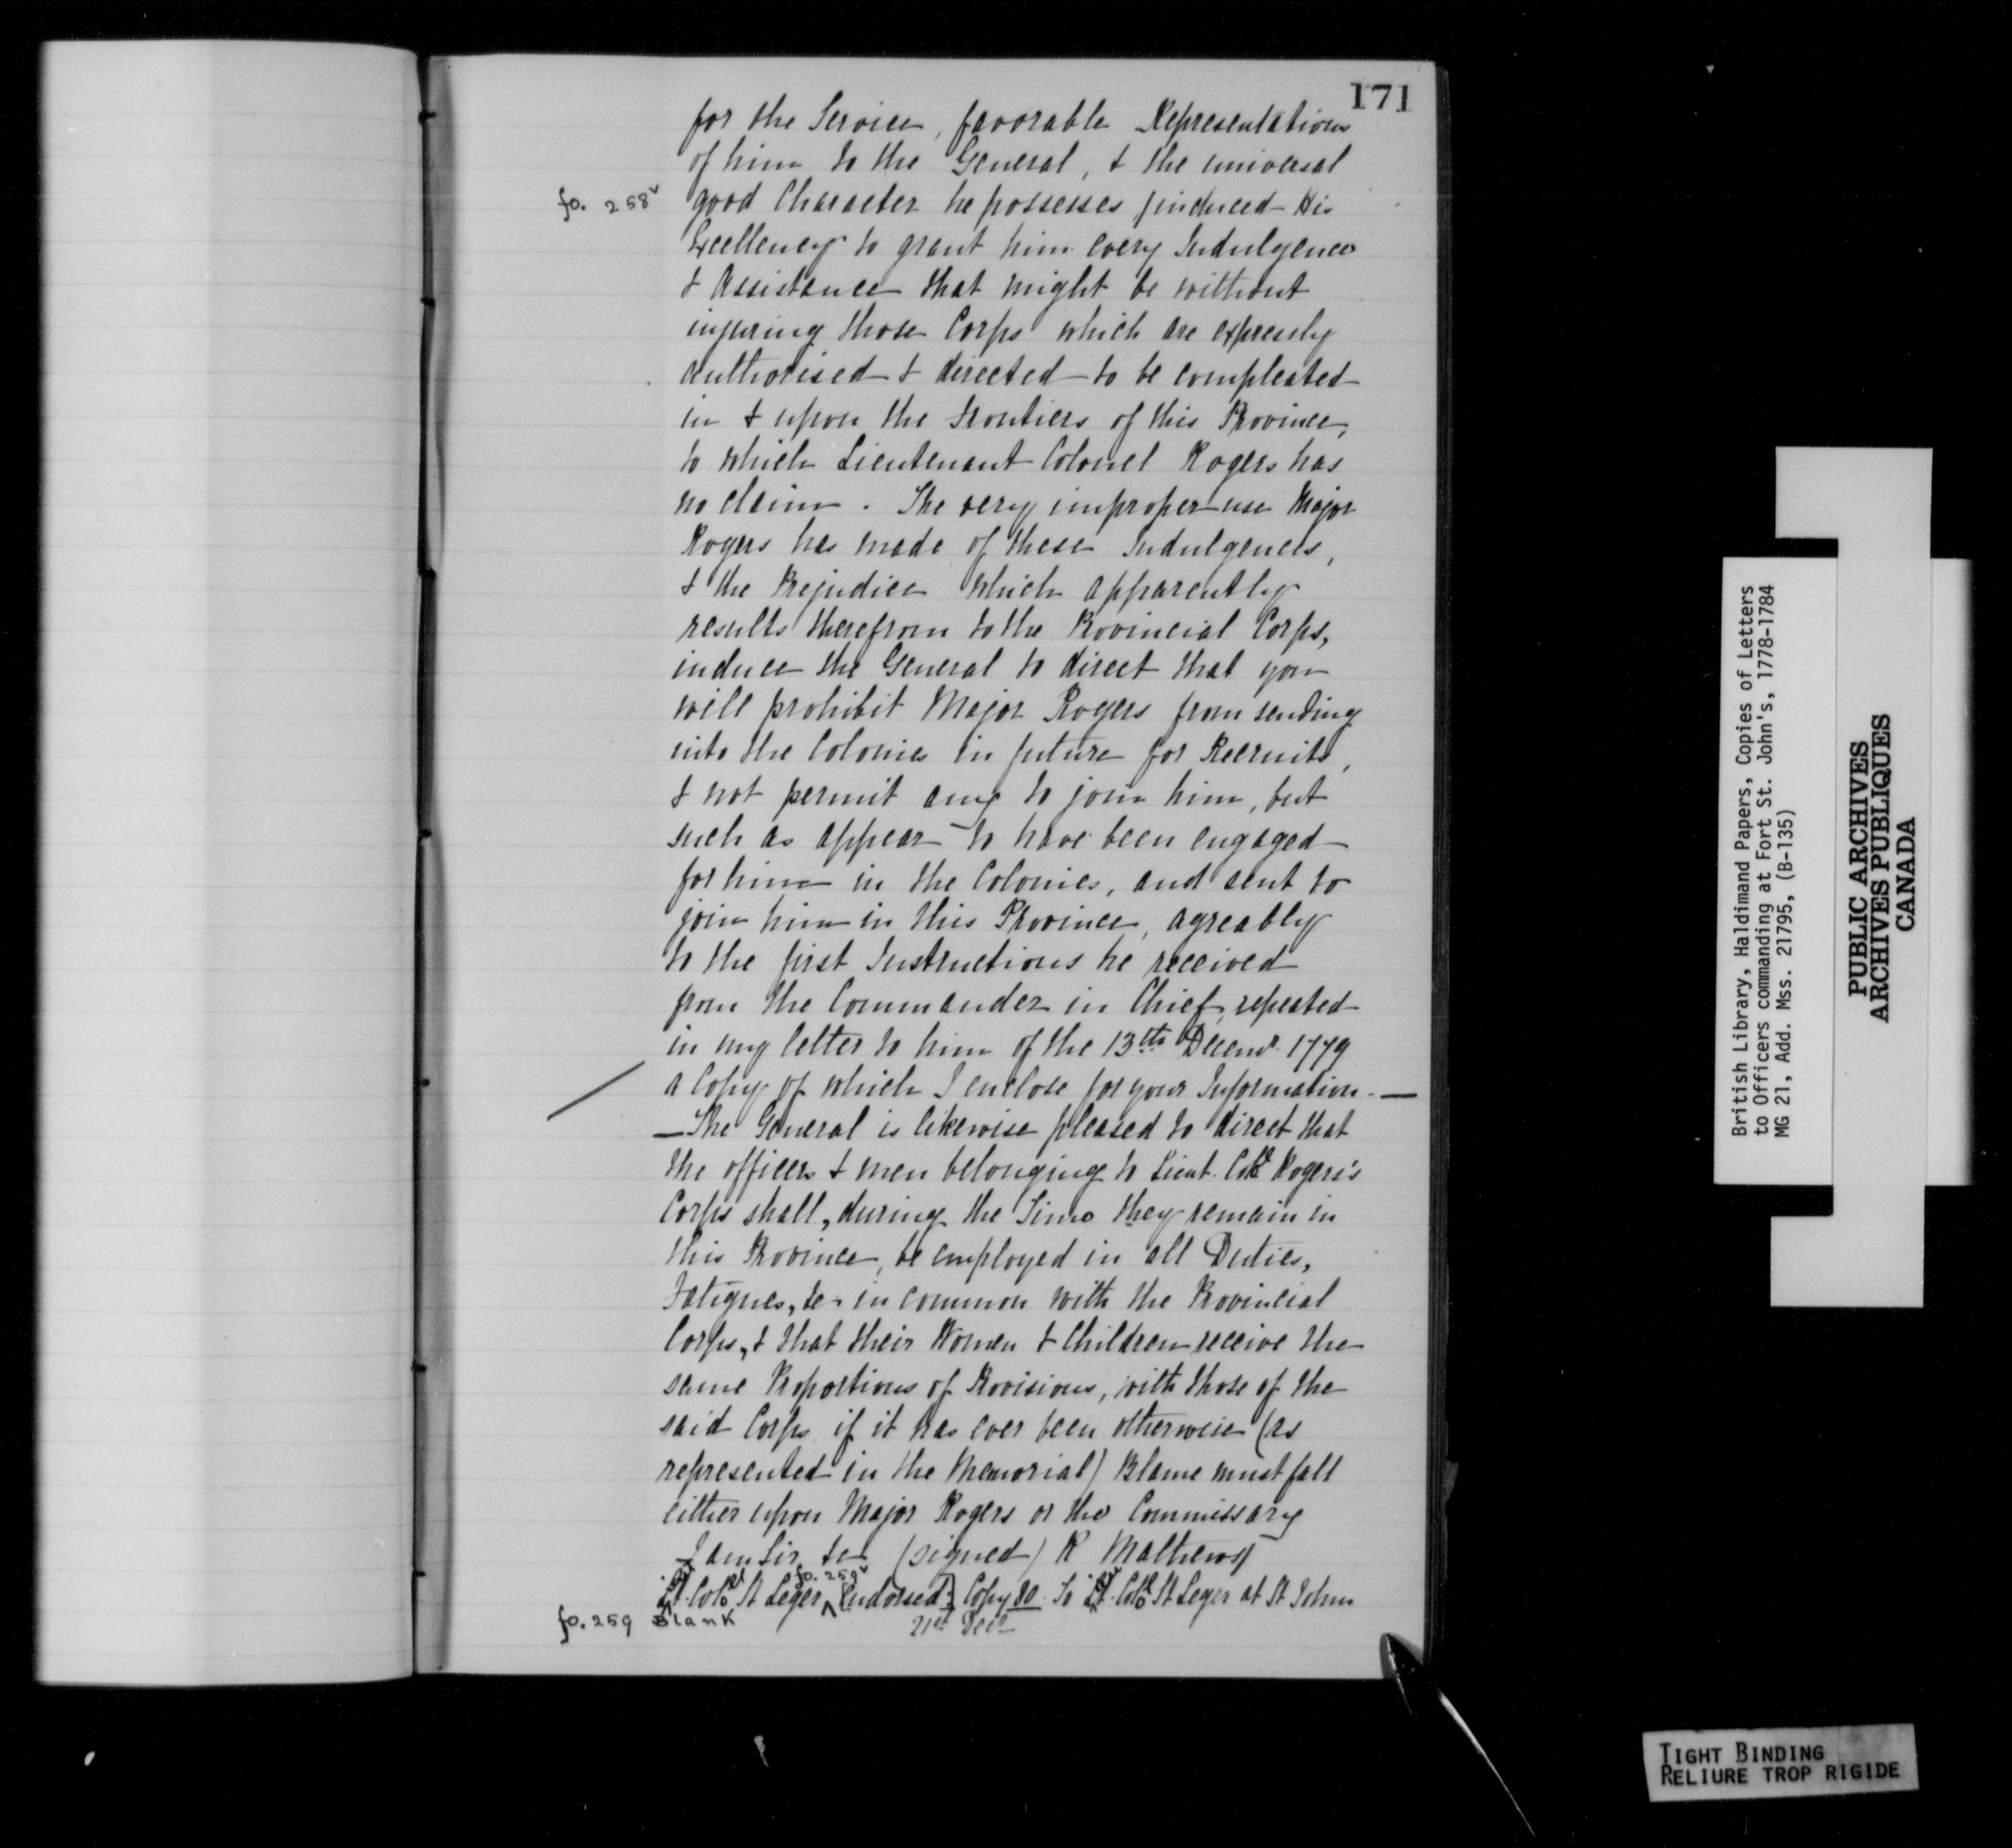 171
for the Service, favorable Representations
of him to the General, & the universal
fo. 258v good Character he possesses induced His
Excellency to grant him every Indulgence
& Assistance that might be without
injuring those Corps which are expressly
authorised & directed to be compleated
in & upon the Frontiers of this Province,
to which Lieutenant Colonel Rogers has
no claim. The very improper use Major
Rogers has made of these Indulgences,
& the Prejudice which apparently
results therefrom to the Provincial Corps,
induce the General to direct that you
will prohibit Major Rogers from sending
into the Colonies in future for Recruits,
& not permit any to join him, but
such as appear to have been engaged
for him in the Colonies, and sent to
join him in this Province, agreably
to the first Instructions he received
from the Commander in Chief, repeated
in my letter to him of the 13th Decemr. 1779
a Copy of which I enclose for your Information. —
— The General is likewise pleased to direct that
the officers & men belonging to Lieut. Coll Rogers's
Corps shall, during the Time they remain in
this Province, be employed in all Duties,
Fatigues, &c in common with the Provincial
Corps, & that their Women & Children receive the
same Proportions of Provisions, with those of the
said Corps if it has ever been otherwise (as
represented in the Memorial) Blame must fall
either upon Major Rogers or the Commissary
I am Sir &c (signed) R Mathews
fo. 259v
Lt. Col. St Leger [Endorsed:] Copy 80. To Lt. Col. St Leger at St Johns
21st Decr
fo. 259 Blank
British Library, Haldimand Papers, Copies of Letters
to Officers commanding at Fort St. John's, 1778-1784
MG 21, Add. Mss. 21795, (B-135)
PUBLIC ARCHIVES
ARCHIVES PUBLIQUES
CANADA
TIGHT BINDING
RELIURE TROP RIGIDE